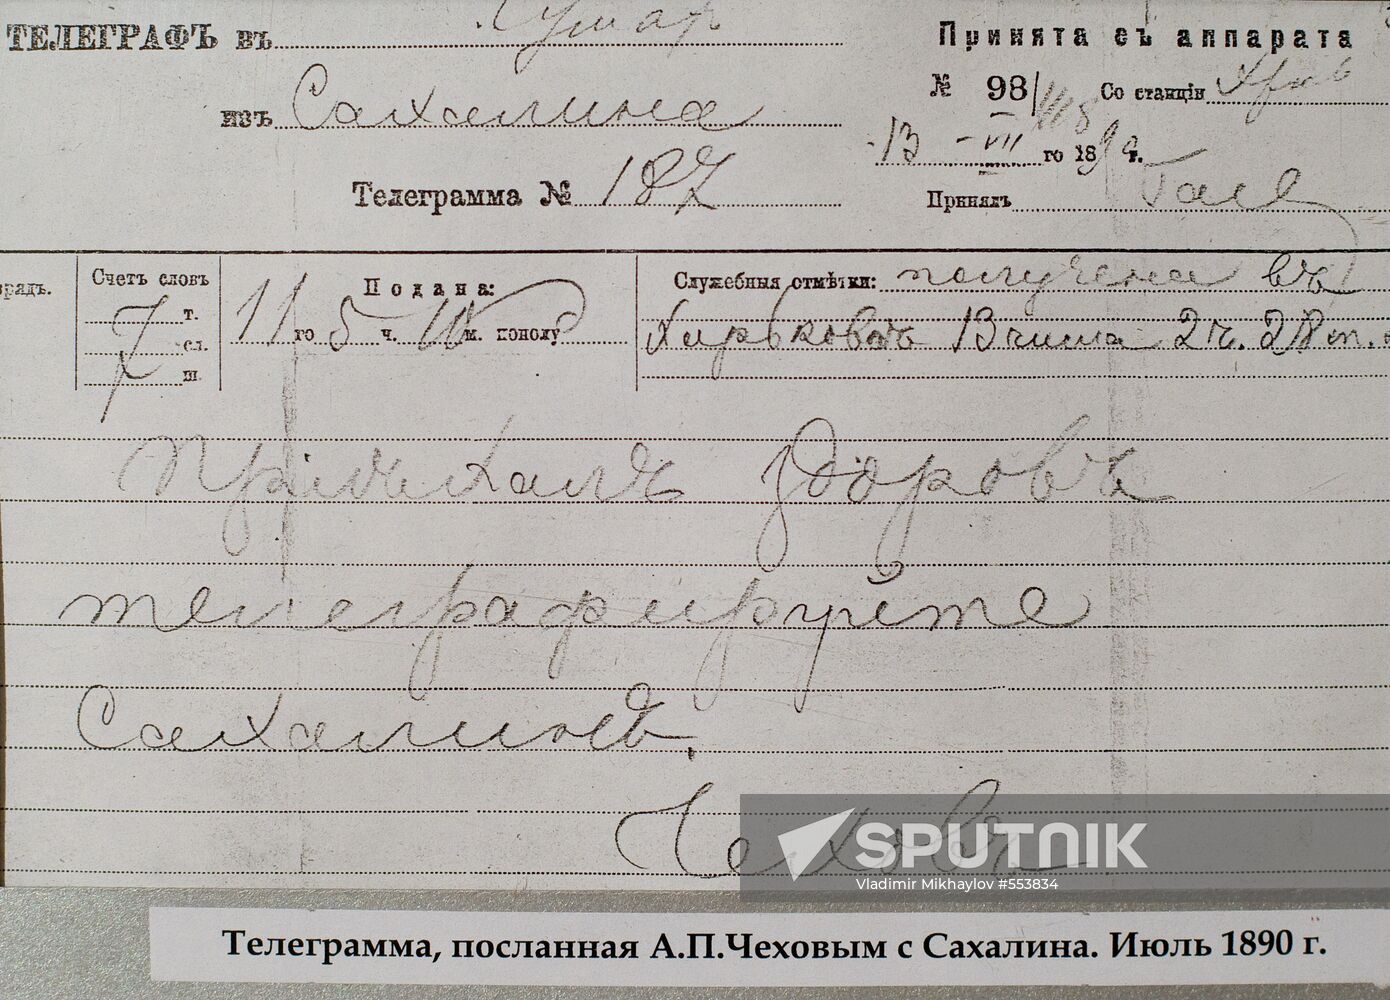 ТЕЛЕГРАФЪ въ Сумы
Принята съ аппарата
№ 98/ Со станціи Хрк
изъ Сахалина
13 - VII го 1890 г.
Телеграмма № 187
Принялъ
Счетъ словъ
7
т.
сл.
ш.
Подана:
11 го 5 ч. 10 м. пополу
Служебныя отмѣтки: получена въ
Харьковѣ 13 числа 2 ч. 28 м.
Пріѣхалъ здоровъ
телеграфируйте
Сахалинъ.
Чеховъ
SPUTNIK
Vladimir Mikhaylov #553834
Телеграмма, посланная А.П.Чеховым с Сахалина. Июль 1890 г.